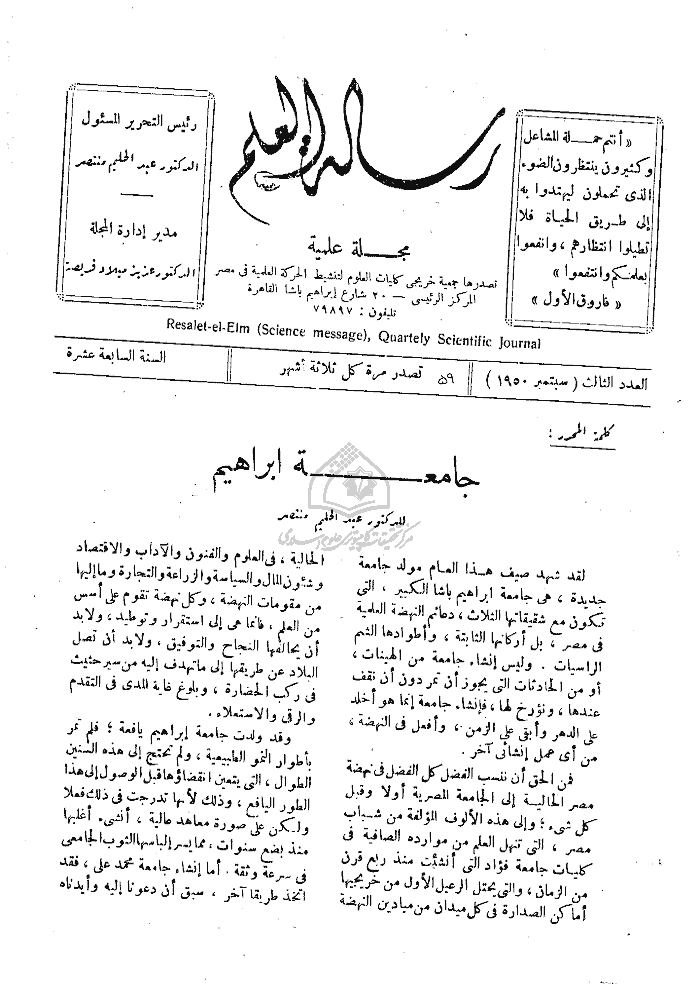 « أنتم حمـلة المشاعل
وكثيرون ينتظرون الضوء
الذى تحملون ليهتدوا به
إلى طريق الحياة فلا
تطيلوا انتظارهم ، وانفعوا
بعلمكم وانتفعوا »
« فاروق الأول »
رسالة العلم
مجـلة علمية
تصدرها جمعية خريجى كليات العلوم لتنشيط الحركة العلمية فى مصر
المركز الرئيسى — ٢٠ شارع إبراهيم باشا القاهرة
تليفون : ٧٩٨٩٧
رئيس التحرير المسئول
الدكتور عبد الحليم منتصر
مدير إدارة المجلة
الدكتور عزيز ميلاد فريصة
Resalet-el-Elm (Science message), Quartely Scientific Journal
العدد الثالث ( سبتمبر ١٩٥٠ )
٥٩ تصدر مرة كل ثلاثة أشهر
السنة السابعة عشرة
كلمة المحرر :
جامعــة ابراهيم
للدكتور عبد الحليم منتصر
لقد شهد صيف هذا العام مولد جامعة
جديدة ، هى جامعة ابراهيم باشا الكبير ، التى
تكون مع شقيقاتها الثلاث ، دعائم النهضة العلمية
فى مصر ، بل أركانها الثابتة ، وأطوادها الشم
الراسيات . وليس إنشاء جامعة من الهينات ،
أو من الحادثات التى يجوز أن تمر دون أن نقف
عندها ، ونؤرخ لها ، فإنشاء جامعة إنما هو أخلد
على الدهر وأبقى على الزمن ، وأفعل فى النهضة ،
من أى عمل إنشائى آخر .
فمن الحق أن ننسب الفضل كل الفضل فى نهضة
مصر الحالية إلى الجامعة المصرية أولا وقبل
كل شىء ؛ وإلى هذه الألوف المؤلفة من شباب
مصر ، التى تنهل العلم من موارده الصافية فى
كليات جامعة فؤاد التى أنشئت منذ ربع قرن
من الزمان ، والتى يحتل الرعيل الأول من خريجيها
أماكن الصدارة فى كل ميدان من ميادين النهضة
الحالية ، فى العلوم والفنون والآداب والاقتصاد
وشئون المال والسياسة والزراعة والتجارة وما إليها
من مقومات النهضة ، وكل نهضة تقوم على أسس
من العلم ، فانما هى إلى استقرار وتوطيد ، ولابد
أن يحالفها النجاح والتوفيق ، ولابد أن تصل
البلاد عن طريقها إلى ما تهدف إليه من سير حثيث
فى ركب الحضارة ، وبلوغ غاية المدى فى التقدم
والرقى والاستعلاء .
وقد ولدت جامعة إبراهيم يافعة ؛ فلم تمر
بأطوار النمو الطبيعية ، ولم تحتج إلى هذه السنين
الطوال ، التى يتعين انقضاؤها قبل الوصول إلى هذا
الطور اليافع ، وذلك لأنها تدرجت فى ذلك فعلا
ولكن على صورة معاهد عالية ، أنشىء أغلبها
منذ بضع سنوات ، مما يسر إلباسها الثوب الجامعى
فى سرعة وثقة . أما إنشاء جامعة محمد على ، فقد
اتخذ طريقا آخر ، سبق أن دعونا إليه وأيدناه